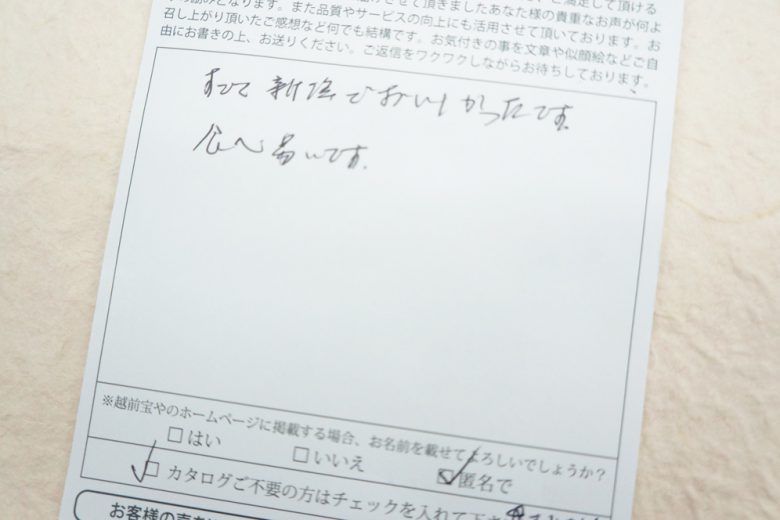 させて頂きましたあなた様の貴重なお声が何よ
りの励みとなります。また品質やサービスの向上にも活用させて頂いております。お
召し上がり頂いたご感想など何でも結構です。お気付きの事を文章や似顔絵などご自
由にお書きの上、お送りください。ご返信をワクワクしながらお待ちしております。
すべて新鮮でおいしかったです。
食べ易いです。
※越前宝やのホームページに掲載する場合、お名前を載せてよろしいでしょうか？
□はい □いいえ ☑匿名で
☑カタログご不要の方はチェックを入れて下さ
お客様の声を